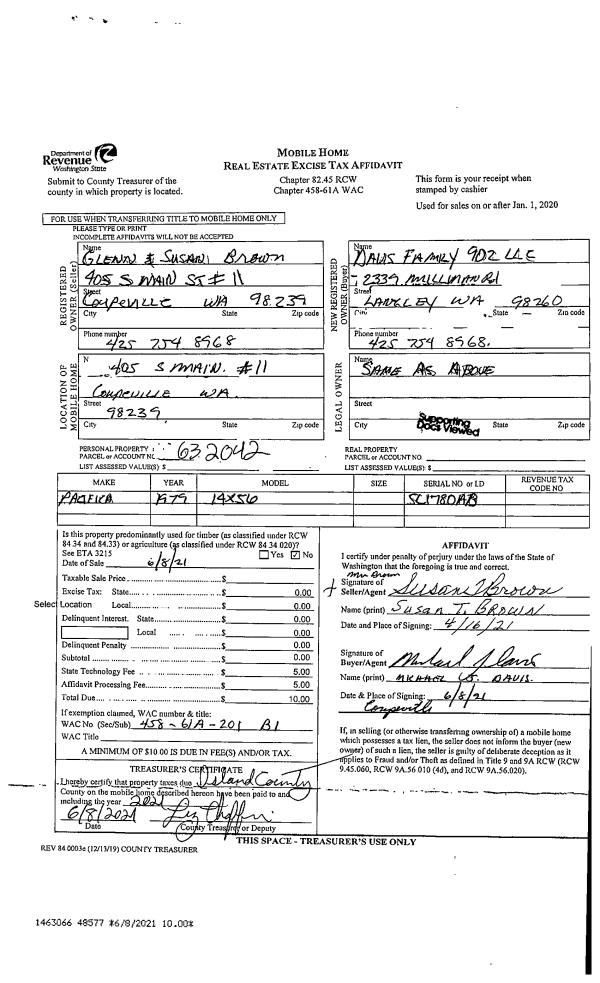 Department of
Revenue
Washington State
Submit to County Treasurer of the
county in which property is located.
MOBILE HOME
REAL ESTATE EXCISE TAX AFFIDAVIT
Chapter 82.45 RCW
Chapter 458-61A WAC
This form is your receipt when
stamped by cashier
Used for sales on or after Jan. 1, 2020
FOR USE WHEN TRANSFERRING TITLE TO MOBILE HOME ONLY
PLEASE TYPE OR PRINT
INCOMPLETE AFFIDAVITS WILL NOT BE ACCEPTED
REGISTERED
OWNER (Seller)
Name
GLENN & SUSAN BROWN
405 S MAIN ST # 11
Street
COUPEVILLE WA 98239
City State Zip code
Phone number
425 754 8968
NEW REGISTERED
OWNER (Buyer)
Name
DAVIS FAMILY 902 LLC
2339 MILLMAN Rd
Street
LANGLEY WA 98260
State Zip code
Phone number
425 754 8968.
LOCATION OF
MOBILE HOME
N
405 S MAIN. #11
COUPEVILLE WA.
Street
98239
City State Zip code
LEGAL OWNER
Name
SAME AS ABOVE
Street
Supporting
Docs Viewed
City State Zip code
PERSONAL PROPERTY
PARCEL or ACCOUNT NO. 632042
LIST ASSESSED VALUE(S): $
REAL PROPERTY
PARCEL or ACCOUNT NO.
LIST ASSESSED VALUE(S): $
MAKE YEAR MODEL SIZE SERIAL NO or I.D REVENUE TAX CODE NO
PACIFICA 1979 14X56 SC1780AB
Is this property predominantly used for timber (as classified under RCW
84.34 and 84.33) or agriculture (as classified under RCW 84 34 020)?
See ETA 3215 Yes No
Date of Sale 6/8/21
Taxable Sale Price $
Excise Tax: State $ 0.00
Select Location Local $ 0.00
Delinquent Interest. State $ 0.00
Local $ 0.00
Delinquent Penalty $ 0.00
Subtotal $ 0.00
State Technology Fee $ 5.00
Affidavit Processing Fee $ 5.00
Total Due $ 10.00
If exemption claimed, WAC number & title:
WAC No. (Sec/Sub) 458-61A-201 B1
WAC Title
A MINIMUM OF $10.00 IS DUE IN FEE(S) AND/OR TAX.
TREASURER'S CERTIFICATE
I hereby certify that property taxes due Island County
County on the mobile home described hereon have been paid to and
including the year 2021
6/8/2021
Date County Treasurer or Deputy
AFFIDAVIT
I certify under penalty of perjury under the laws of the State of
Washington that the foregoing is true and correct.
Signature of
Seller/Agent Susan T Brown
Name (print) SUSAN T. BROWN
Date and Place of Signing: 4/16/21
Signature of
Buyer/Agent
Name (print) MICHAEL DAVIS.
Date & Place of Signing: 6/8/21
Coupeville
If, in selling (or otherwise transferring ownership of) a mobile home
which possesses a tax lien, the seller does not inform the buyer (new
owner) of such a lien, the seller is guilty of deliberate deception as it
applies to Fraud and/or Theft as defined in Title 9 and 9A RCW (RCW
9.45.060, RCW 9A.56 010 (4d), and RCW 9A.56.020).
THIS SPACE - TREASURER'S USE ONLY
REV 84 0003e (12/13/19) COUNTY TREASURER
1463066 48577 *6/8/2021 10.00*